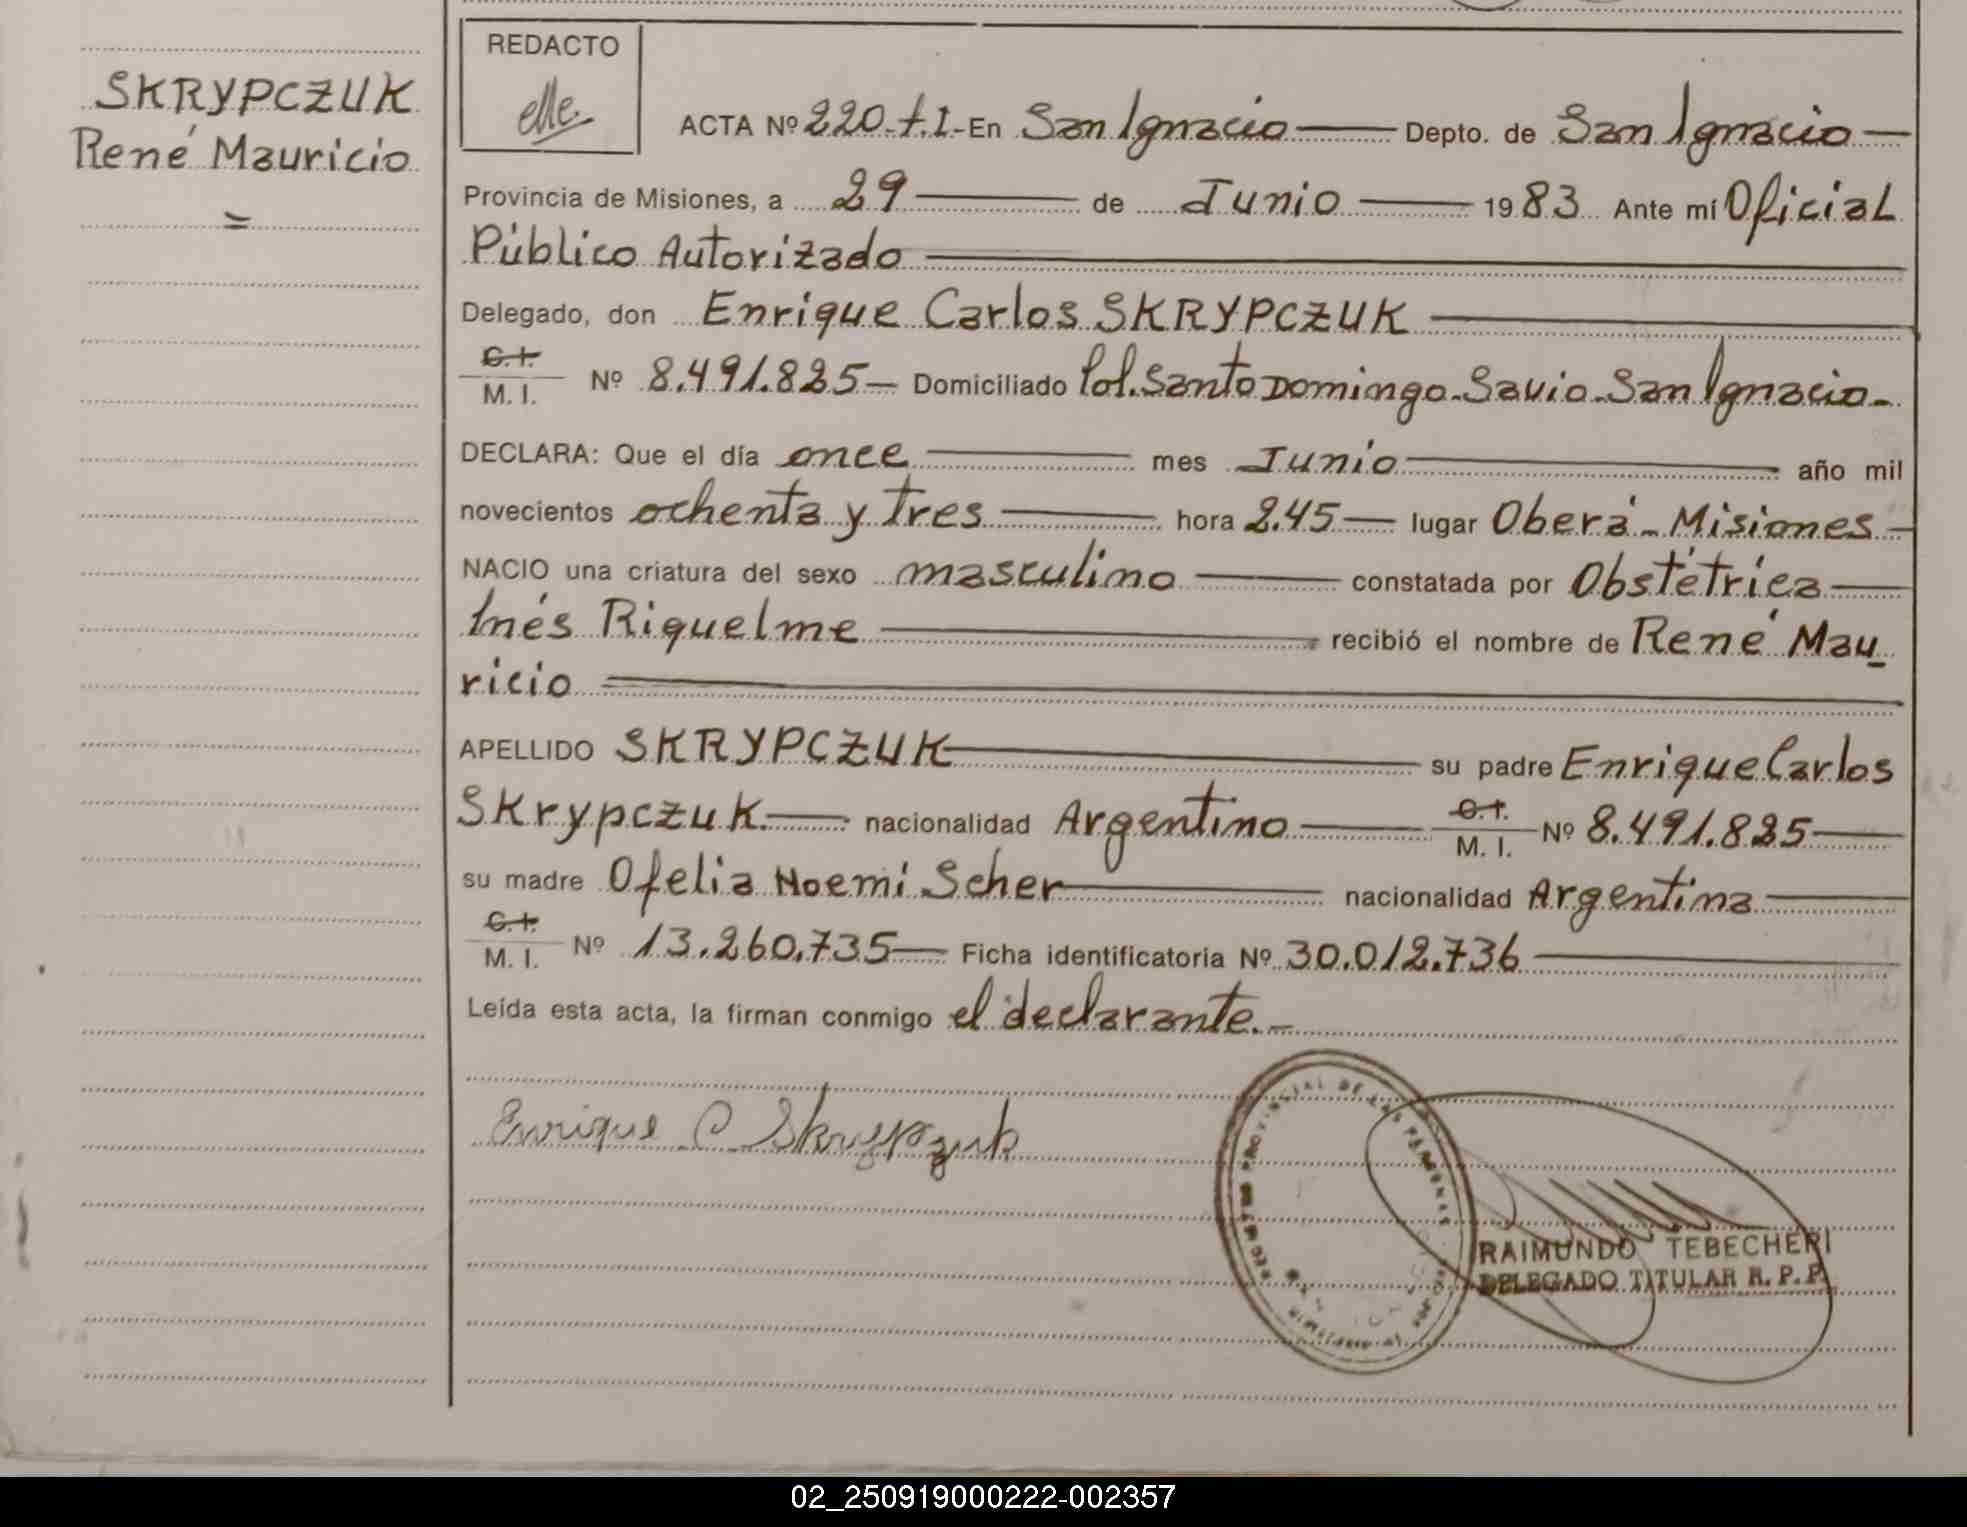 SKRYPCZUK
René Mauricio
=
REDACTO
ACTA Nº 220-t.I-En San Ignacio Depto. de San Ignacio
Provincia de Misiones, a 29 de Junio 1983 Ante mí Oficial
Público Autorizado
Delegado, don Enrique Carlos SKRYPCZUK
C.I.
M. I. Nº 8.491.825 Domiciliado Col. Santo Domingo-Savio-San Ignacio-
DECLARA: Que el día once mes Junio año mil
novecientos ochenta y tres hora 2.45 lugar Oberá-Misiones
NACIO una criatura del sexo masculino constatada por Obstétrica
Inés Riquelme recibió el nombre de René Mau
ricio
APELLIDO SKRYPCZUK su padre Enrique Carlos
Skrypczuk. nacionalidad Argentino C.I. M. I. Nº 8.491.825
su madre Ofelia Noemí Scher nacionalidad Argentina
C.I.
M. I. Nº 13.260.735 Ficha identificatoria Nº 30.012.736
Leída esta acta, la firman conmigo el declarante.-
Enrique C Skrypczuk
PROVINCIAL DE LAS PERSONAS
RAIMUNDO TEBECHERI
DELEGADO TITULAR R. P. P.
02_250919000222-002357